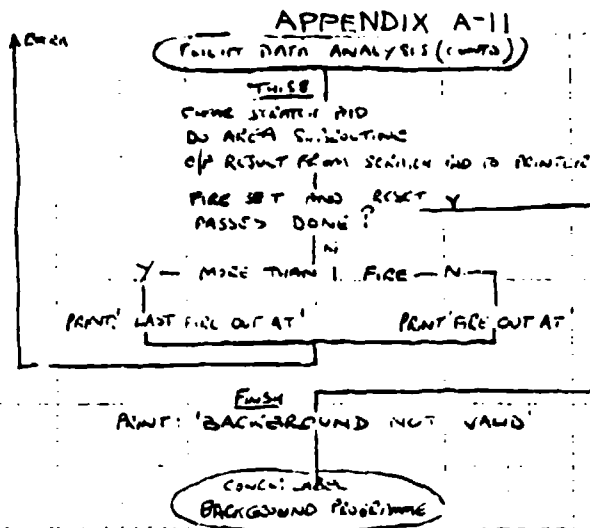 APPENDIX A-11
DATA ANALYSIS (CONTD)
DO AREA SUBROUTINE
O/P RESULT FROM SCRATCH PAD TO PRINTLINE
FIRE SET AND RESET Y
PASSES DONE?
N
Y — MORE THAN 1 FIRE — N
PRINT: 'LAST FIRE OUT AT'
PRINT 'FIRE OUT AT'
FINISH
PRINT: 'BACKGROUND NOT VALID'
BACKGROUND PROGRAMME